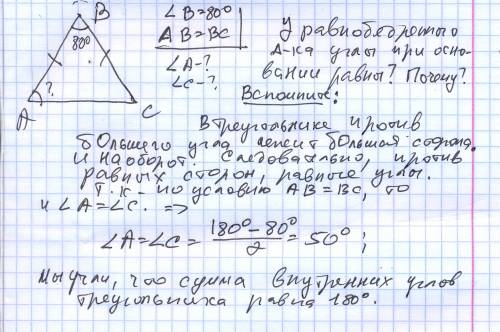 B
80°
?
A
C
∠B=80°
AB=BC
∠A-?
∠C-?
У равнобедренного
Δ-ка углы при осно-
вании равны? Почему?
Вспомните:
В треугольнике против
бОльшего угла лежит бОльшая сторона.
И наоборот. Следовательно, против
равных сторон, равные углы.
Т.к - по условию AB=BC, то
и ∠A=∠C. =>
∠A=∠C= 180°-80° / 2 = 50° ;
Мы учли, что сумма внутренних углов
треугольника равна 180°.